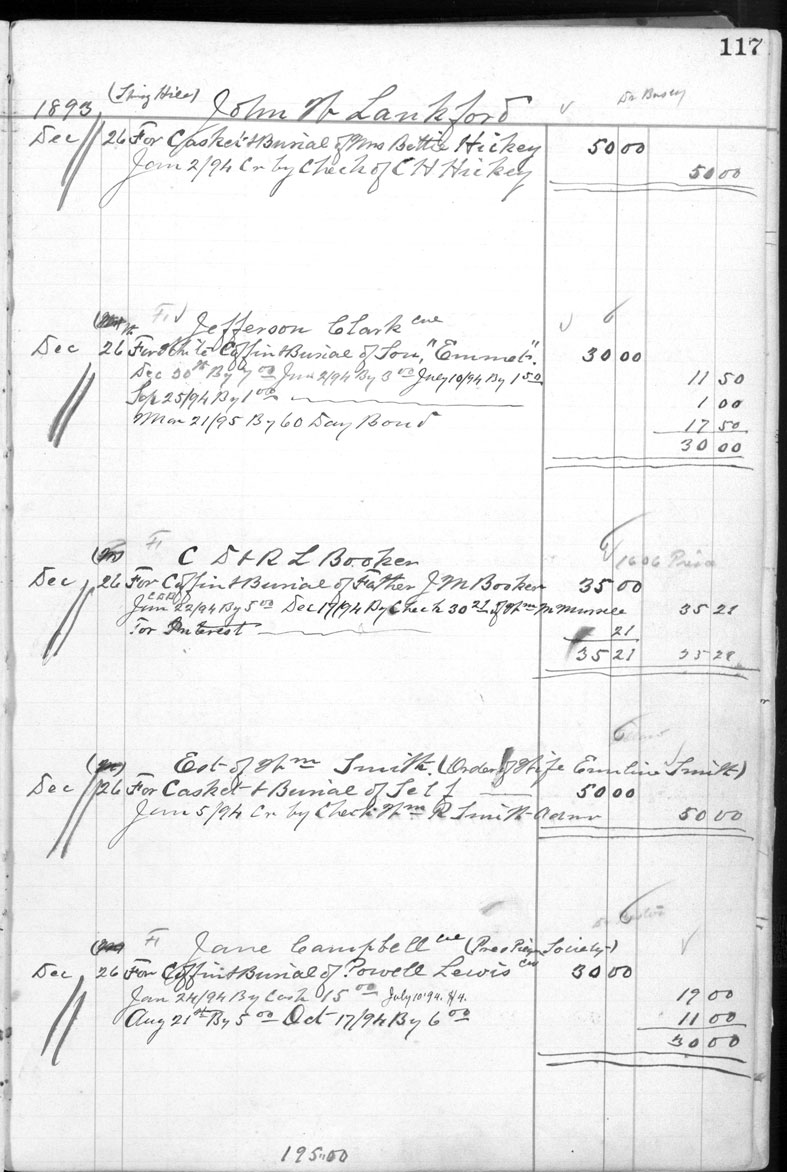 117
(Spring Hill) John W Lankford Dr Busey
1893
Dec 26 For Casket & Burial of Mrs Bettie Hickey 50 00
Jan 2/94 Cr by Check of C H Hickey 50 00
Jefferson Clark
Dec 26 For White Coffin & Burial of Son, "Emmet". 30 00
Dec 30th By 7 00 Jan 2/94 By 3 00 July 10/94 By 1 50 11 50
Sep 25/94 By 1 00 1 00
Mar 21/95 By 60 Day Bond 17 50
30 00
C D & R L Booker
Dec 26 For Coffin & Burial of Father J M Booker 35 00
Jan 22/94 By 5 00 Dec 17/94 By Check 30 21 of Wm 35 21
For Interest 21
35 21 35 21
Est of Wm Smith. (Order of Wife Emiline Smith)
Dec 26 For Casket & Burial of Self 50 00
Jan 5/94 Cr by Check Wm R Smith Admr 50 00
Jane Campbell Society)
Dec 26 For Coffin & Burial of Powell Lewis 30 00
Jan 24/94 By Cash 15 00 July 10'94. By 4. 19 00
Aug 21st By 5 00 Oct 17/94 By 6 00 11 00
30 00
195.00